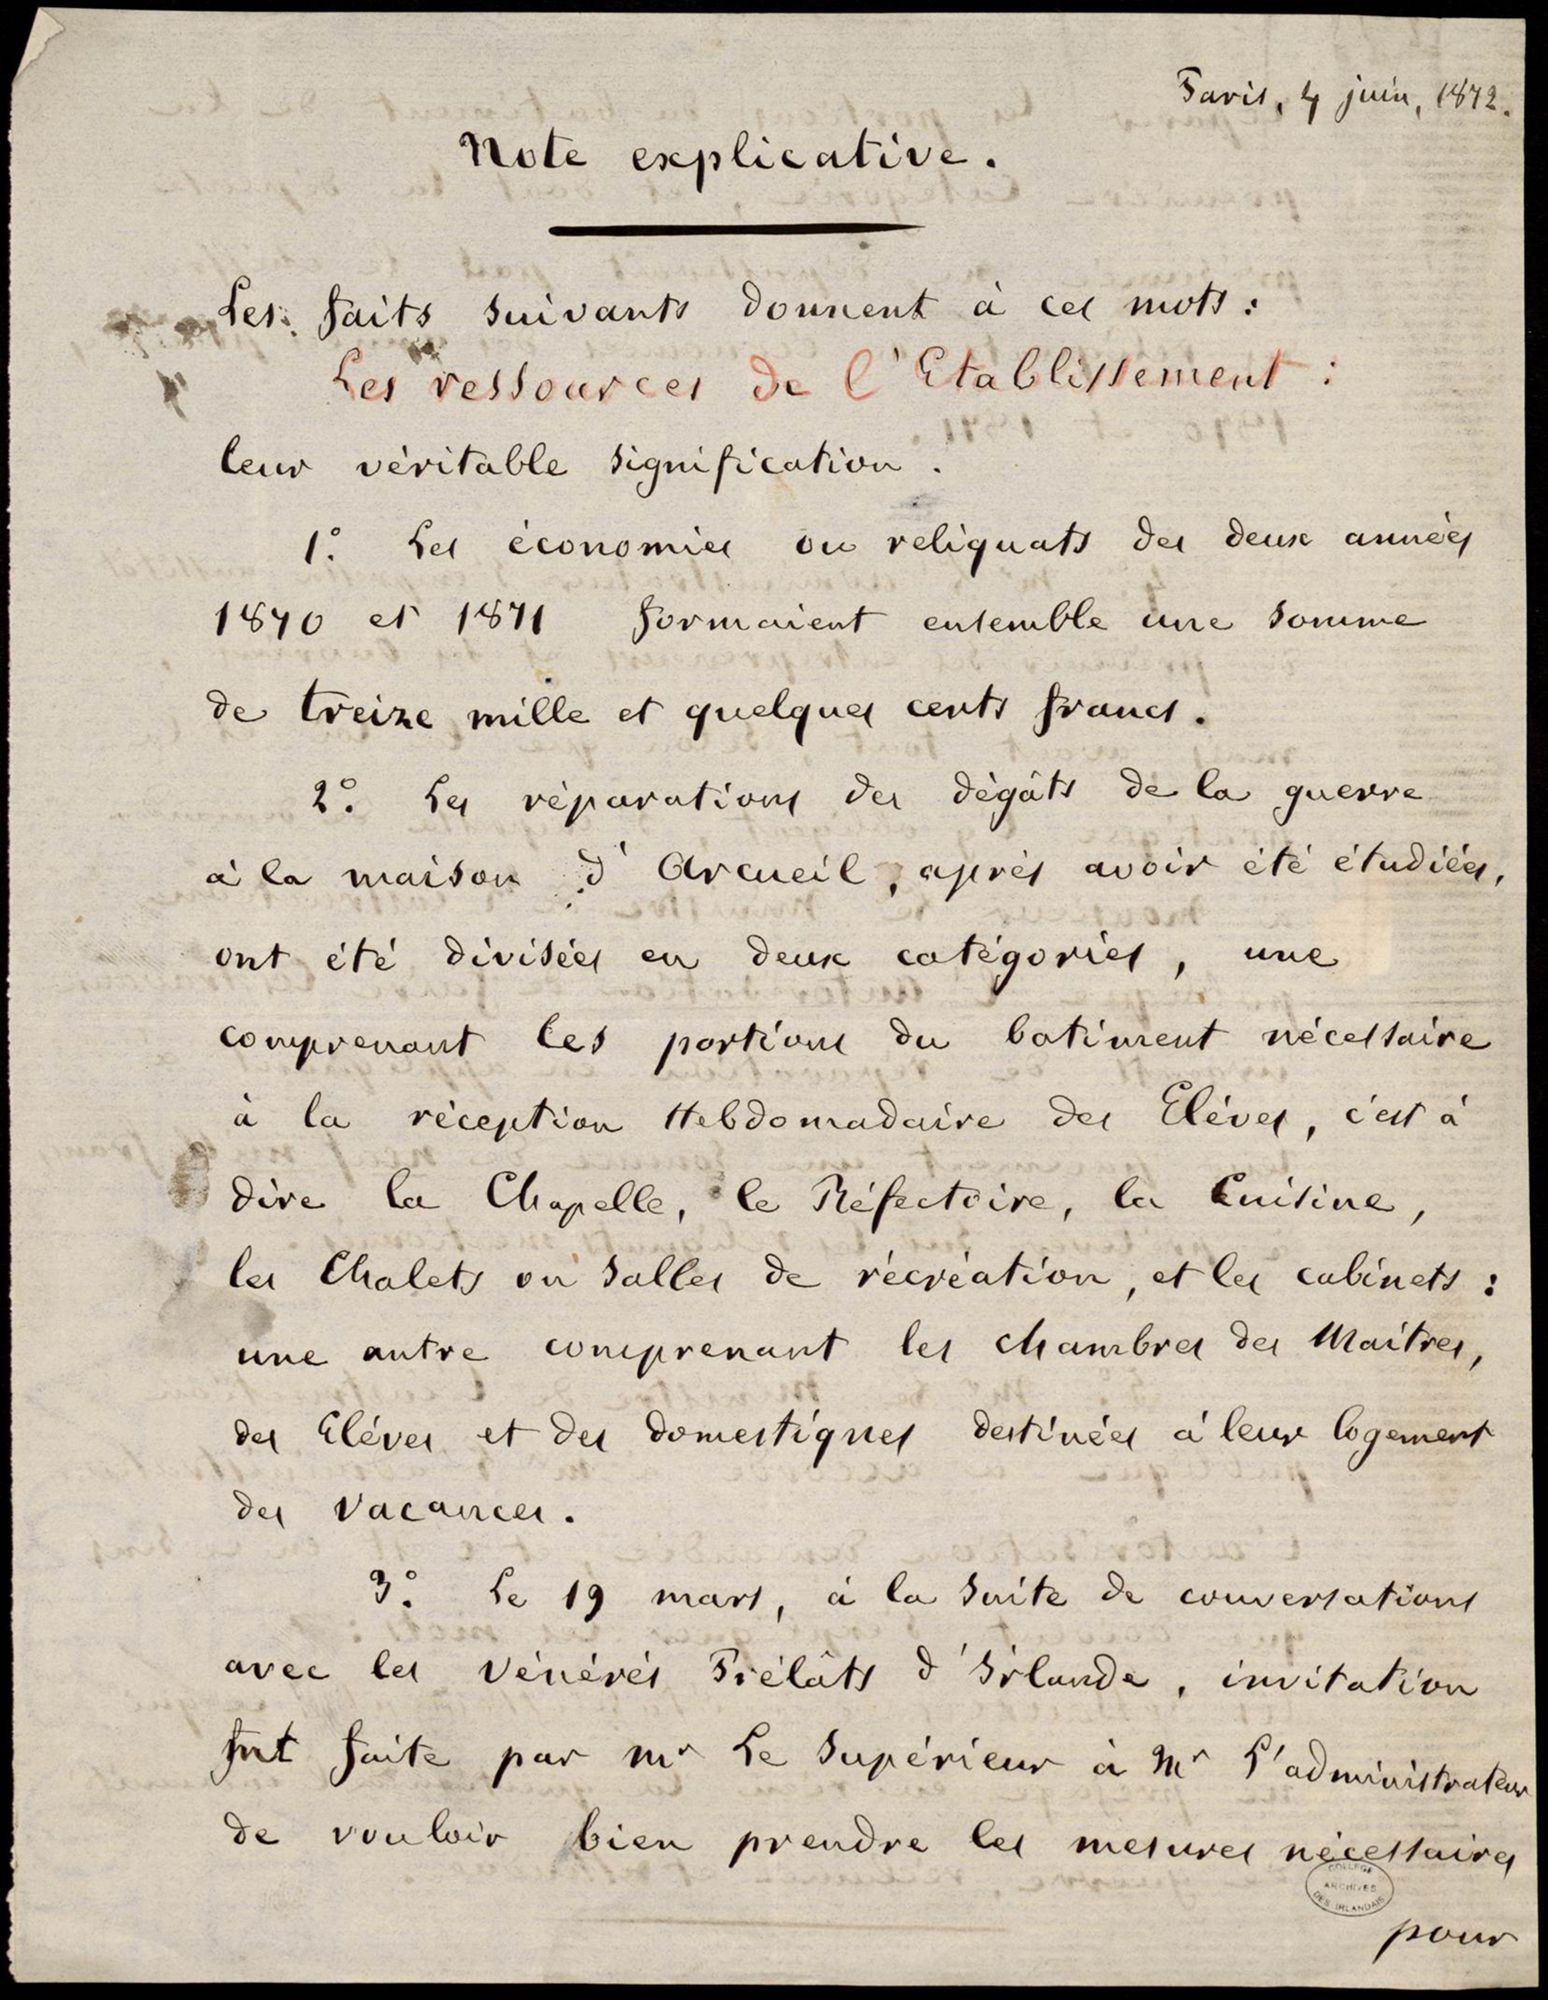 Paris, 4 juin, 1872.
Note explicative.
Les faits suivants donnent à ces mots :
Les ressources de l'Etablissement :
leur véritable signification.
1°. Les économies ou reliquats des deux années
1870 et 1871 formaient ensemble une somme
de treize mille et quelques cents francs.
2°. Les réparations des dégâts de la guerre
à la maison d'Arcueil, aprés avoir été étudiées,
ont été divisées en deux catégories, une
comprenant les portions du batiment nécessaire
à la réception Hebdomadaire des Eléves, c'est à
dire la Chapelle, le Réfectoire, la Cuisine,
les Chalets ou Salles de récréation, et les cabinets :
une autre comprenant les chambres des Maitres,
des Eléves et des domestiques destinées à leur logement
des vacances.
3°. Le 19 mars, à la suite de conversations
avec les Vénérés Prélâts d'Irlande, invitation
fut faite par Mr Le Supérieur à Mr L'administrateur
de vouloir bien prendre les mesures nécessaires
COLLEGE
ARCHIVES
DES IRLANDAIS
pour